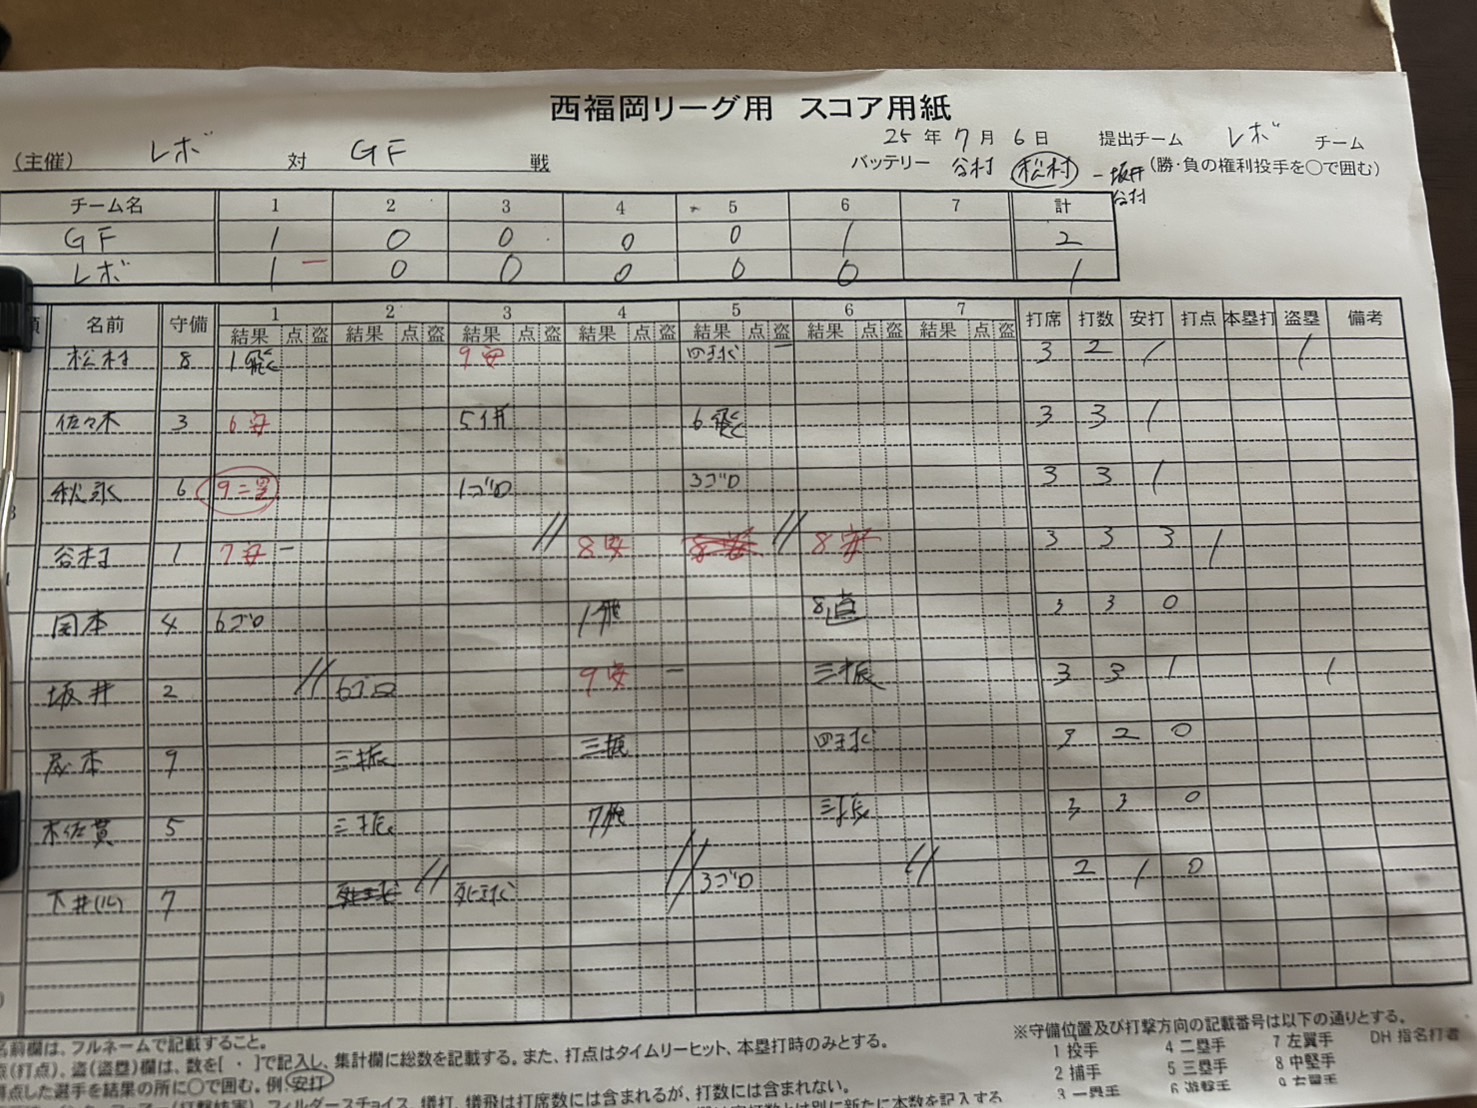 西福岡リーグ用 スコア用紙
25年7月6日 提出チーム レボ チーム
(主催) レボ 対 GF 戦 バッテリー 谷村 松村 - 坂井 (勝・負の権利投手を○で囲む)
谷村
チーム名 1 2 3 4 5 6 7 計
GF 1 0 0 0 0 1 2
レボ 1 0 0 0 0 0 1
名前 守備 1 2 3 4 5 6 7 打席 打数 安打 打点 本塁打 盗塁 備考
結果 点 盗 結果 点 盗 結果 点 盗 結果 点 盗 結果 点 盗 結果 点 盗 結果 点 盗
松村 8 1飛 9安 四球 - 3 2 1 1
佐々木 3 6安 5併 6飛 3 3 1
秋永 6 9二塁 1ゴロ 3ゴロ 3 3 1
谷村 1 7安 - 8安 8安 8安 3 3 3 1
岡本 4 6ゴロ 1飛 8直 3 3 0
坂井 2 6ゴロ 9安 - 三振 3 3 1 1
尾本 9 三振 三振 四球 3 2 0
木佐貫 5 三振 7飛 三振 3 3 0
下井(ル) 7 死球 死球 3ゴロ 2 1 0
名前欄は、フルネームで記載すること。
点(打点)、盗(盗塁)欄は、数を[ ・ ]で記入し、集計欄に総数を記載する。また、打点はタイムリーヒット、本塁打時のみとする。
得点した選手を結果の所に○で囲む。例 安打
フィルダースチョイス、犠打、犠飛は打席数には含まれるが、打数には含まれない。
※守備位置及び打撃方向の記載番号は以下の通りとする。
1 投手 4 二塁手 7 左翼手 DH 指名打者
2 捕手 5 三塁手 8 中堅手
3 一塁手 6 遊撃手 9 右翼手